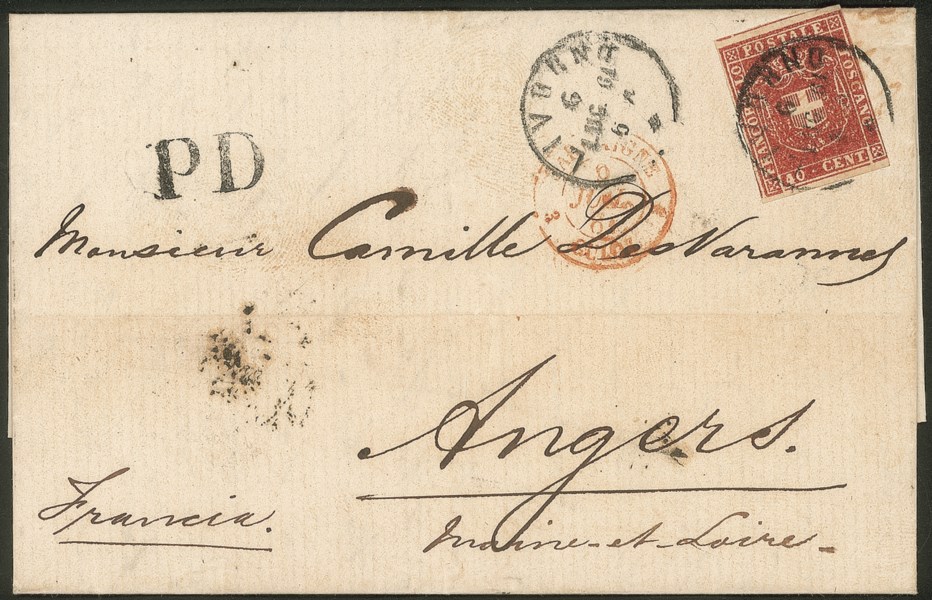 FRANCOBOLLO POSTALE TOSCANO
40 CENT
LIVORNO
6
PD
Monsieur Camille DesVarannes
Angers.
Francia.
Maine-et-Loire-